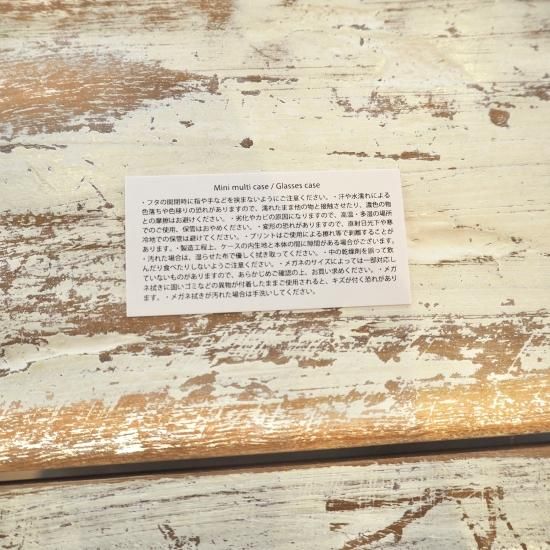 Mini multi case / Glasses case
・フタの開閉時に指や手などを挟まないようにご注意ください。・汗や水濡れによる
色落ちや色移りの恐れがありますので、濡れたまま他の物と接触させたり、濃色の物
との摩擦はお避けください。・劣化やカビの原因になりますので、高温・多湿の場所
でのご使用、保管はおやめください。・変形の恐れがありますので、直射日光下や寒
冷地での保管は避けてください。・プリントはご使用による擦れ等で剥離することが
あります。・製造工程上、ケースの内生地と本体の間に隙間がある場合がございます。
・汚れた場合は、湿らせた布で優しく拭き取ってください。・中の乾燥剤を誤って飲
んだり食べたりしないようご注意ください。・メガネのサイズによっては一部対応し
ていないものがありますので、あらかじめご確認の上、お買い求めください。・メガ
ネ拭きに固いゴミなどの異物が付着したままご使用されると、キズが付く恐れがあり
ます。・メガネ拭きが汚れた場合は手洗いしてください。